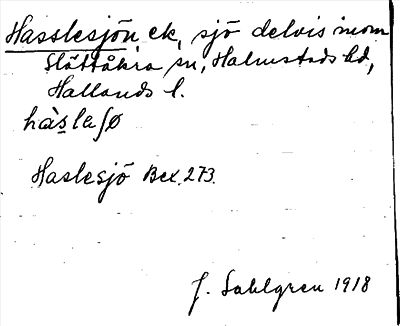 Hasslesjön ek, sjö delvis inom
Slättåkra sn, Halmstads hd,
Hallands l.
hàslaʃø
Haslesjö Bex. 273.
J. Sahlgren 1918